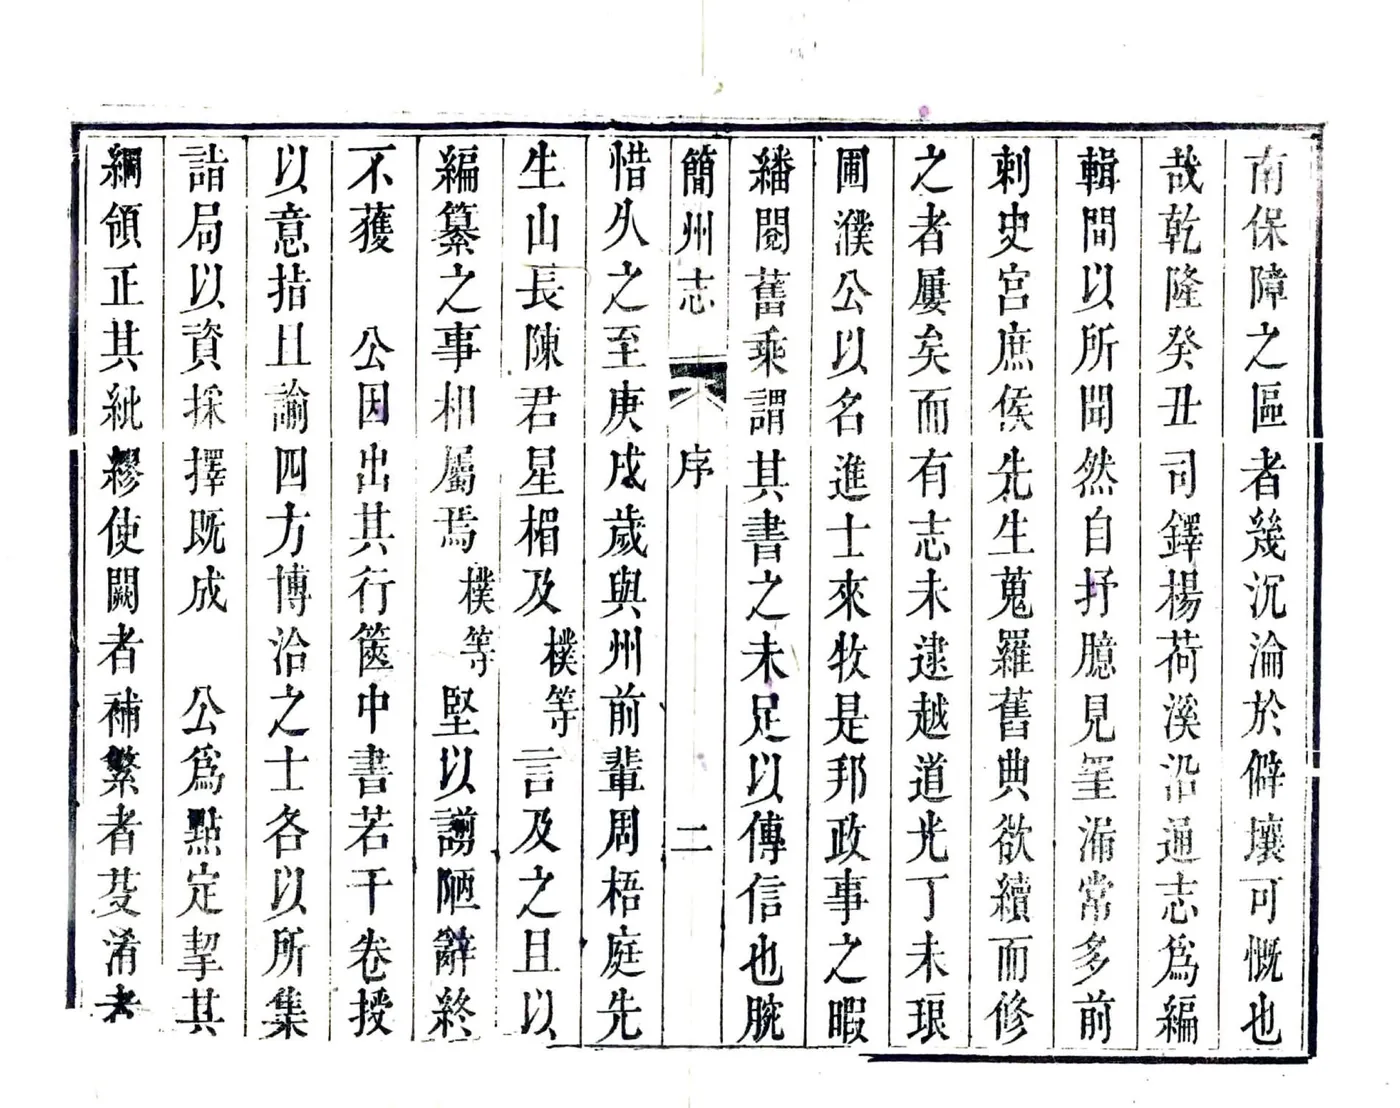 南保障之區者幾沉淪於僻壤可慨也
哉乾隆癸丑司鐸楊荷溪沿通志爲編
輯間以所聞然自抒臆見罣漏常多前
刺史宮庶侯先生蒐羅舊典欲續而修
之者屢矣而有志未逮越道光丁未琅
圃濮公以名進士來牧是邦政事之暇
繙閱舊乘謂其書之未足以傳信也腕
簡州志 序 二
惜久之至庚戌歲與州前輩周梧庭先
生山長陳君星楣及樸等言及之且以
編纂之事相屬焉樸等堅以譾陋辭終
不獲 公因出其行篋中書若干卷授
以意指且諭四方博洽之士各以所集
詣局以資採擇既成 公爲點定挈其
綱領正其紕繆使闕者補繁者芟淆者